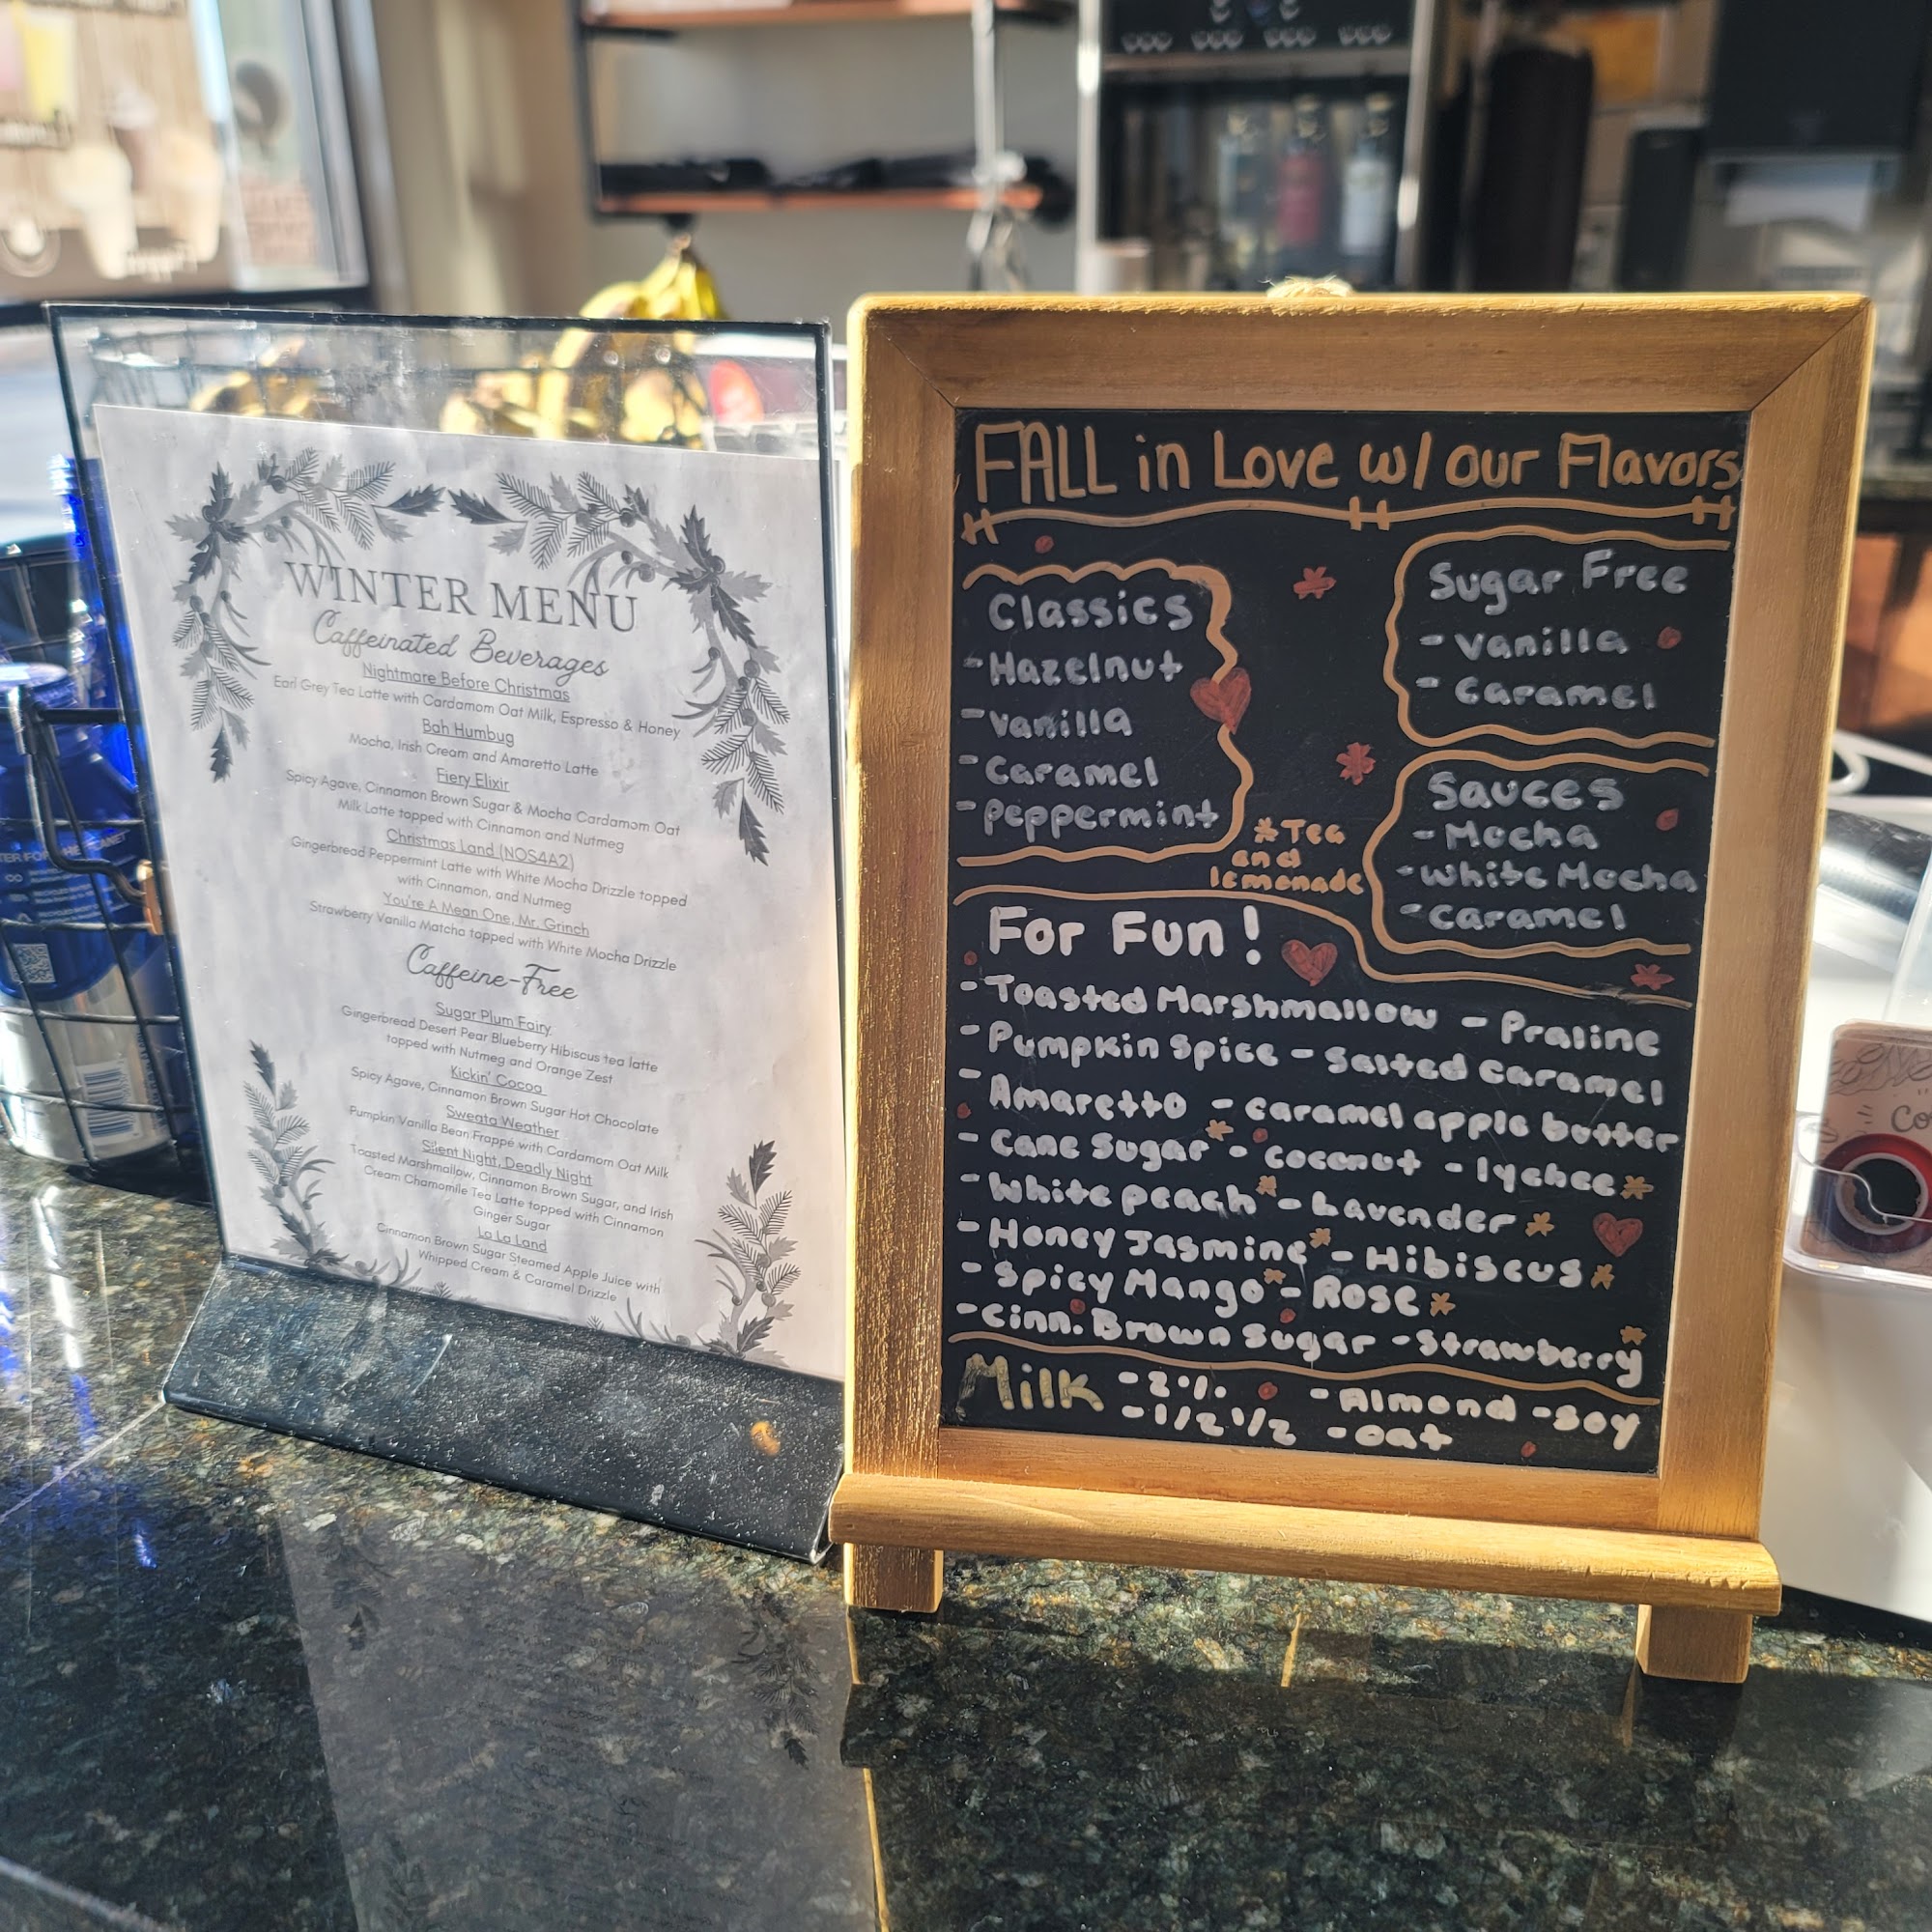 WINTER MENU
Caffeinated Beverages
Nightmare Before Christmas
Earl Grey Tea Latte with Cardamom Oat Milk, Espresso & Honey
Bah Humbug
Mocha, Irish Cream and Amaretto Latte
Fiery Elixir
Spicy Agave, Cinnamon Brown Sugar & Mocha Cardamom Oat
Milk Latte topped with Cinnamon and Nutmeg
Christmas Land (NOS4A2)
Gingerbread Peppermint Latte with White Mocha Drizzle topped
with Cinnamon, and Nutmeg
You're A Mean One, Mr. Grinch
Strawberry Vanilla Matcha topped with White Mocha Drizzle
Caffeine-Free
Sugar Plum Fairy
Gingerbread Desert Pear Blueberry Hibiscus tea latte
topped with Nutmeg and Orange Zest
Kickin' Cocoa
Spicy Agave, Cinnamon Brown Sugar Hot Chocolate
Sweata Weather
Pumpkin Vanilla Bean Frappé with Cardamom Oat Milk
Silent Night, Deadly Night
Toasted Marshmallow, Cinnamon Brown Sugar, and Irish
Cream Chamomile Tea Latte topped with Cinnamon
Ginger Sugar
La La Land
Cinnamon Brown Sugar Steamed Apple Juice with
Whipped Cream & Caramel Drizzle
FALL in Love w/ our Flavors
Classics
- Hazelnut
- Vanilla
- Caramel
- Peppermint
*Tea
and
lemonade
Sugar Free
- Vanilla
- Caramel
Sauces
- Mocha
- White Mocha
- Caramel
For Fun!
- Toasted Marshmallow - Praline
- Pumpkin Spice - Salted Caramel
- Amaretto - caramel apple butter
- Cane Sugar* - coconut - lychee*
- White peach* - Lavender*
- Honey Jasmine* - Hibiscus*
- Spicy Mango* - Rose*
- Cinn. Brown Sugar - Strawberry*
Milk - 2% - Almond - Soy
- 1/2 1/2 - oat